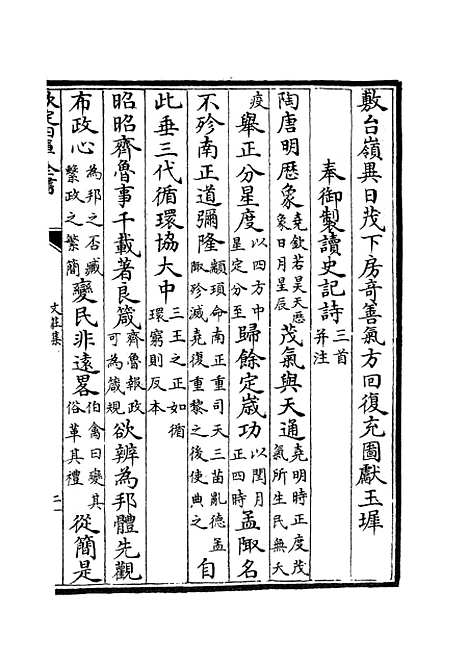 敷台嶺異日茂下房奇善氣方回復充圖獻玉墀
奉御製讀史記詩三首并注
陶唐明歴象堯欽若昊天歴象日月星辰茂氣與天通堯明時正度茂氣所生民無夭
疫舉正分星度以四方中星定分至歸餘定歳功以閏月正四時孟陬名
不殄南正道彌隆顓頊命南正重司天三苗亂德孟陬殄滅堯復重黎之後使典之自
此垂三代循環協大中三王之正如循環窮則反本
昭昭齊魯事千載著良箴齊魯報政可為箴規欲辨為邦體先觀
布政心為邦之否臧繫政之繁簡變民非逺畧伯禽曰變其俗革其禮從簡是
欽定四庫全書
文莊集
二